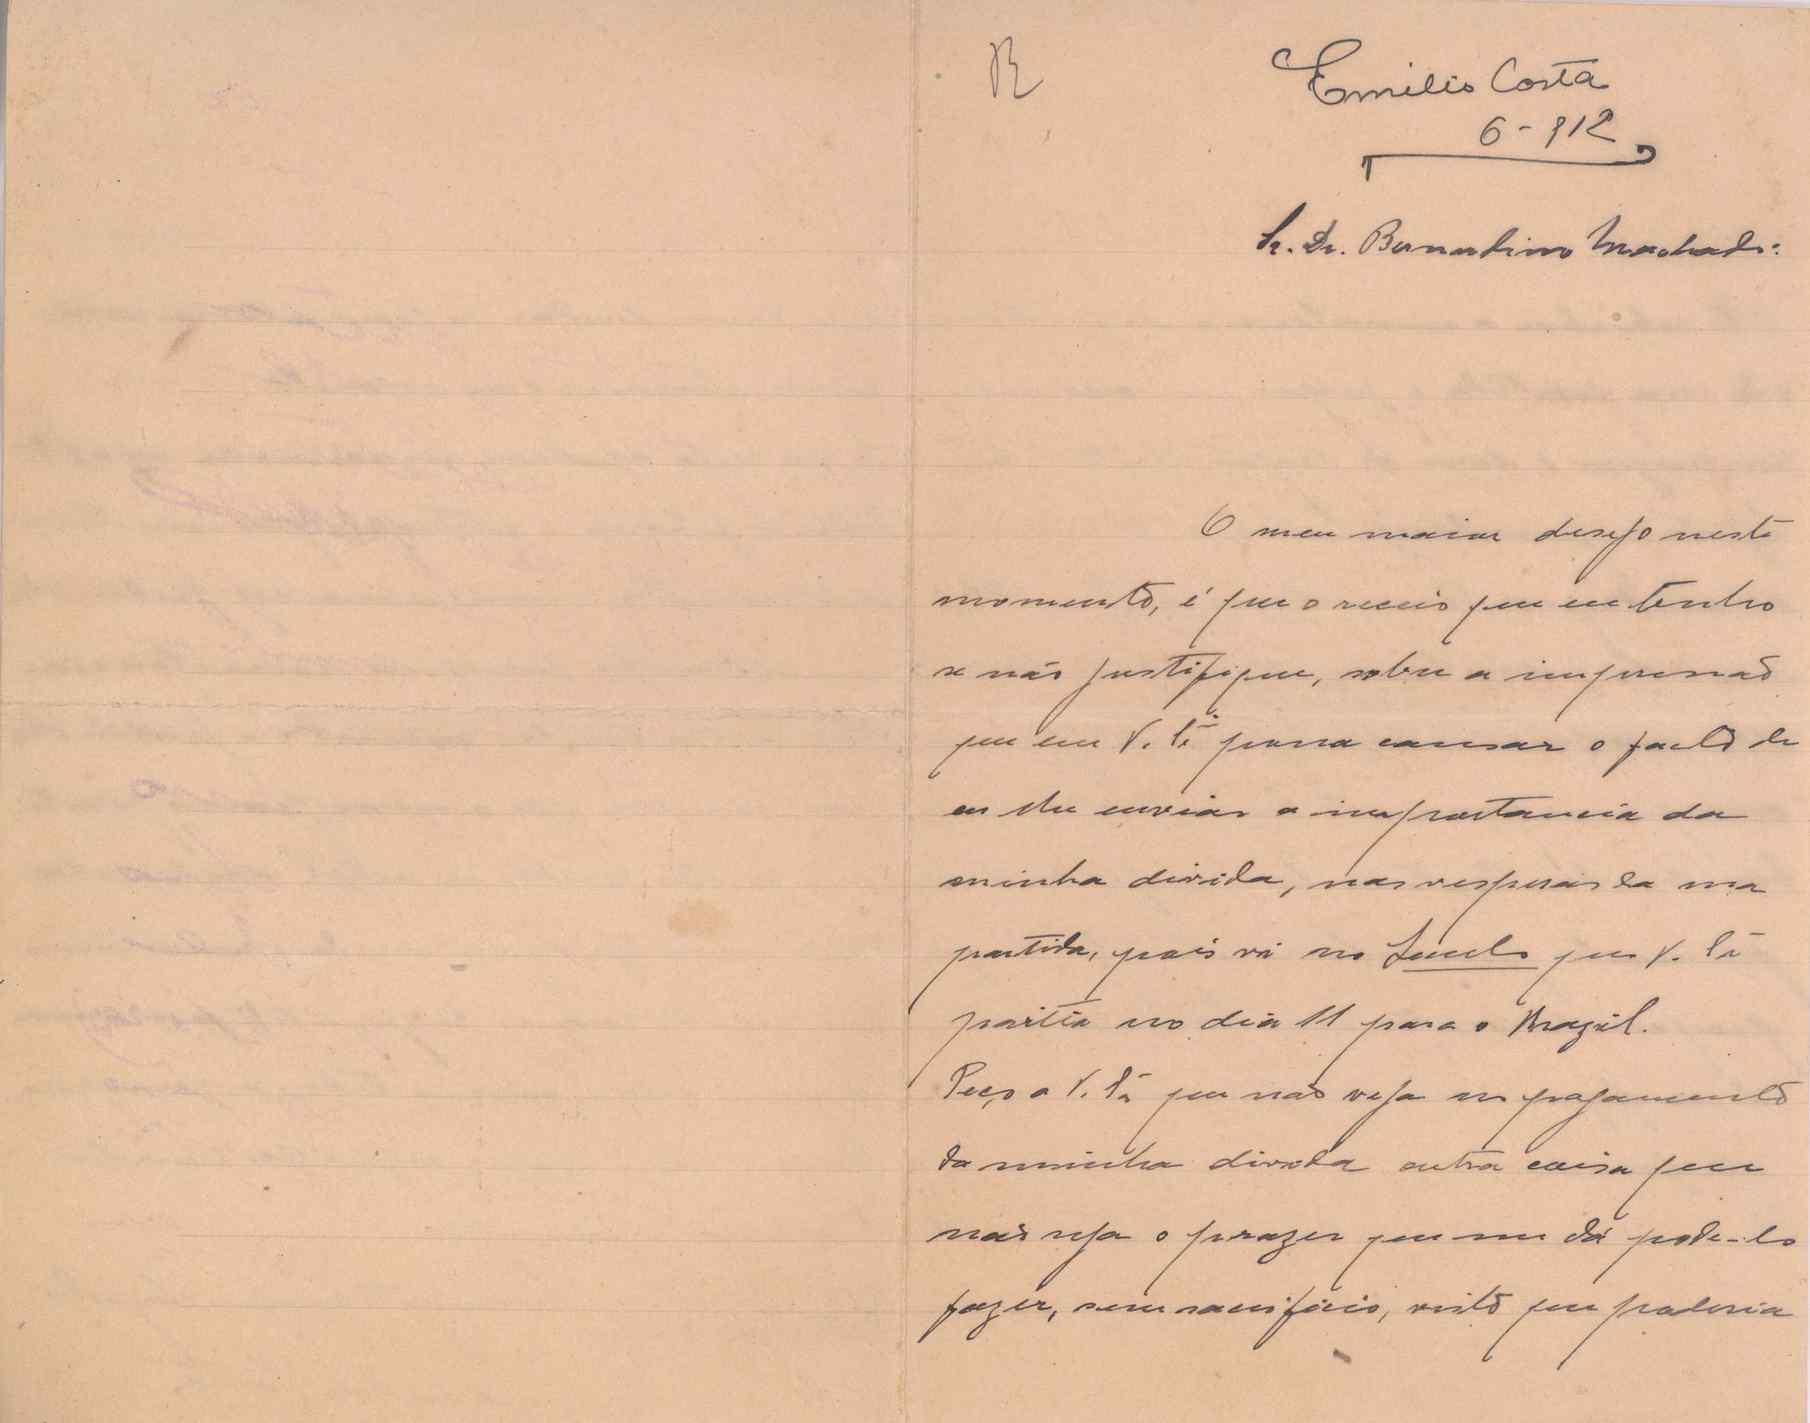 R
Emilio Costa
6-912
Sr. Dr. Bernardino Machado:
O meu maior desejo neste
momento, é que o receio que eu tenho
se não justifique, sobre a impressão
que em V. Exª possa causar o facto de
eu lhe enviar a importancia da
minha divida, nas vesperas da sua
partida, pois vi no Seculo que V. Exª
partia no dia 11 para o Brazil.
Peço a V. Exª que não veja no pagamento
da minha divida outra coisa que
não seja o prazer que me dá pode-lo
fazer, sem sacrificio, visto que poderia